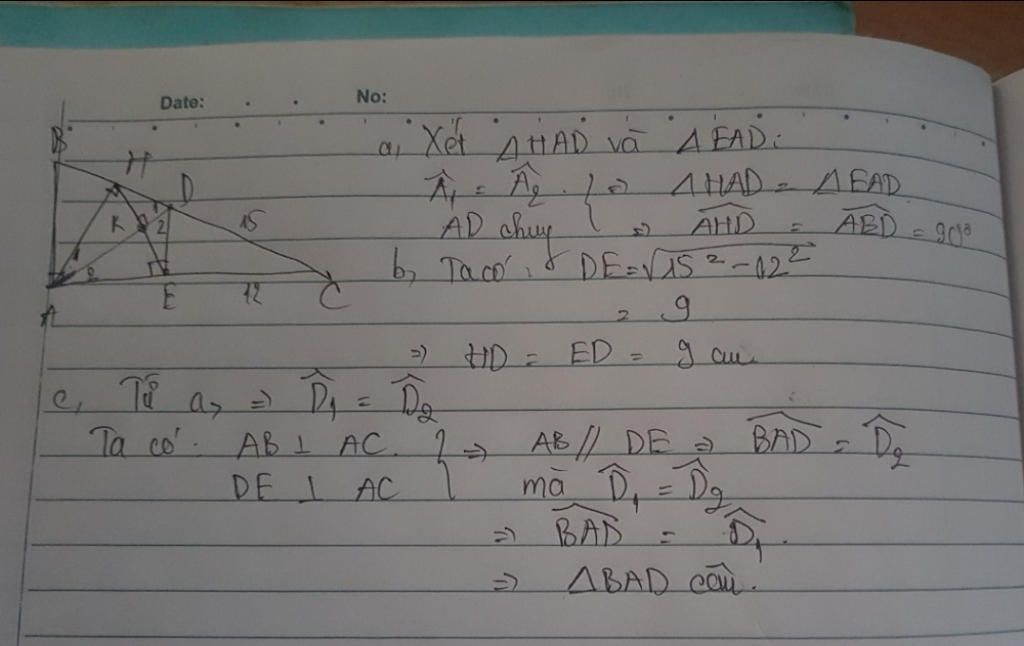 Date: No:
B
H
D
K
1
2
15
1
2
A
E
12
C
a, Xét ΔHAD và ΔEAD:
Â₁ = Â₂ . } => ΔHAD = ΔEAD
AD chung } => \widehat{AHD} = \widehat{AED} = 90°
b, Ta có: DE = √15² - 12²
= 9
=> HD = ED = 9 cm
c, Từ a, => D̂₁ = D̂₂
Ta có: AB ⊥ AC. } => AB // DE => \widehat{BAD} = D̂₂
DE ⊥ AC } mà D̂₁ = D̂₂
=> \widehat{BAD} = D̂₁.
=> ΔBAD cân.